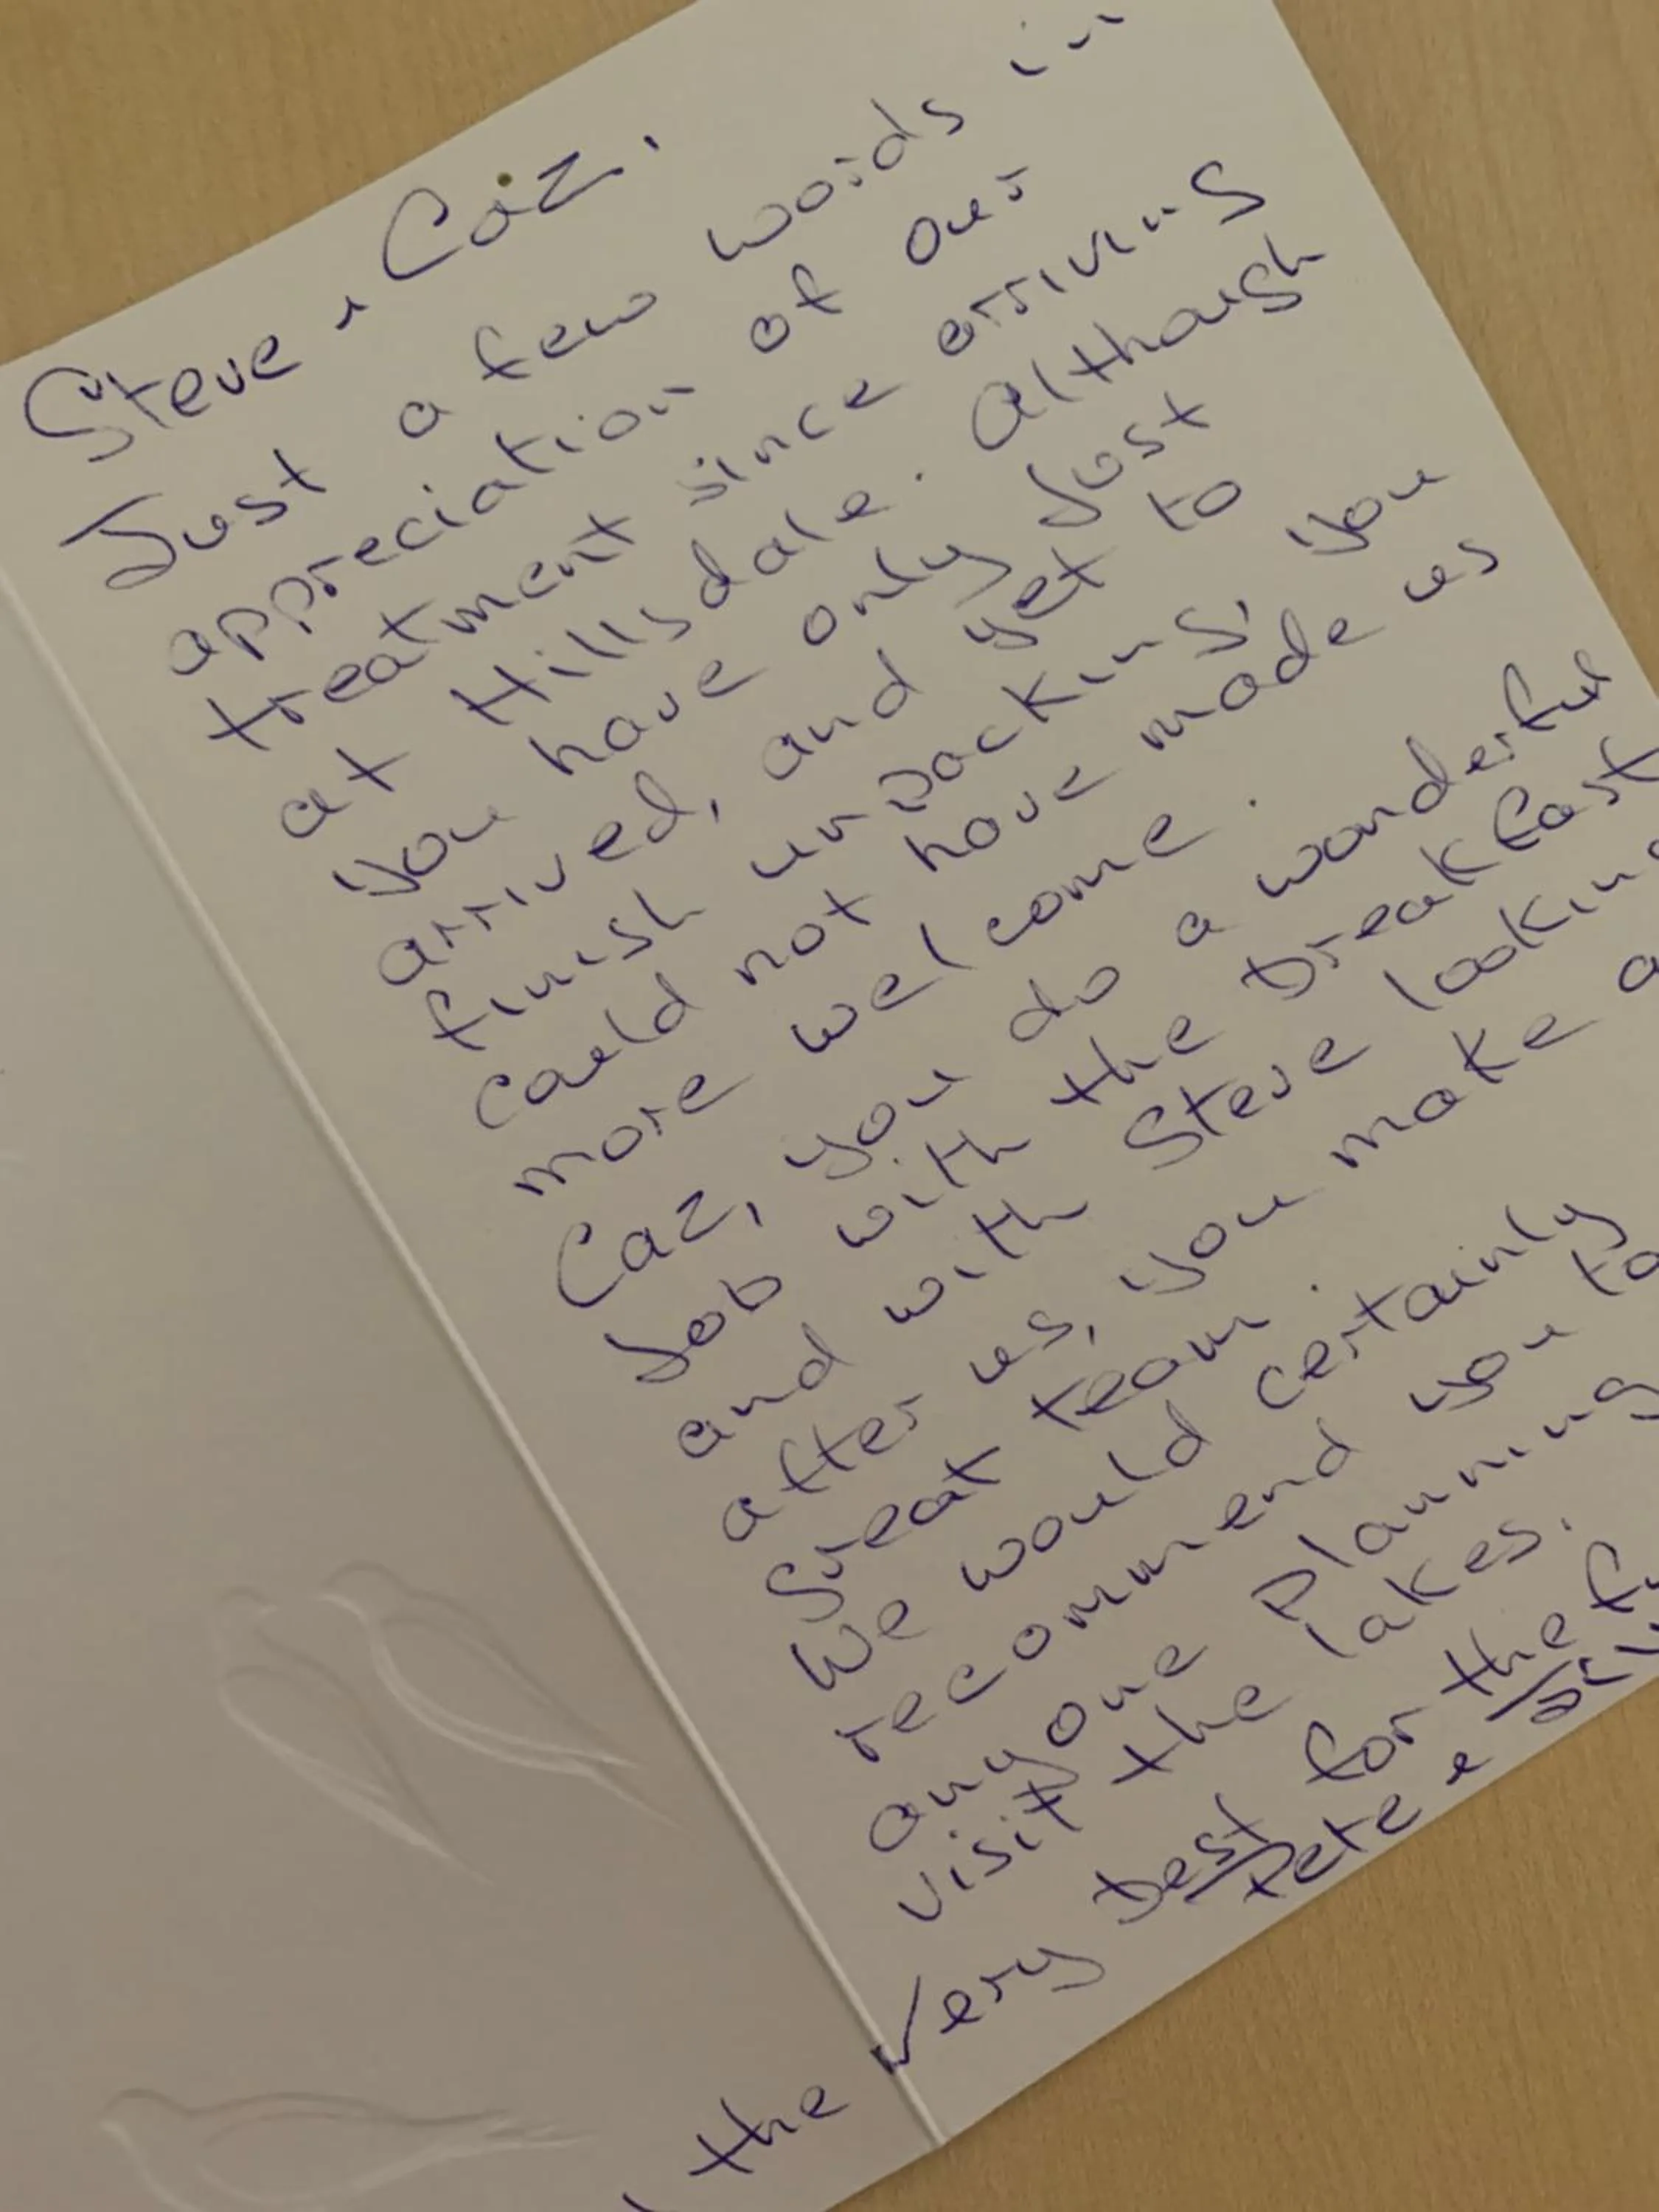 Steve & Caz.
Just a few words in
appreciation of our
treatment since arriving
at Hillsdale. Although
you have only just
arrived, and yet to
finish unpacking, you
could not have made us
more welcome.
Caz, you do a wonderful
job with the breakfast
and with Steve looking
after us, you make a
great team.
We would certainly
recommend you to
anyone planning
visit the lakes.
the very best for the
Pete &